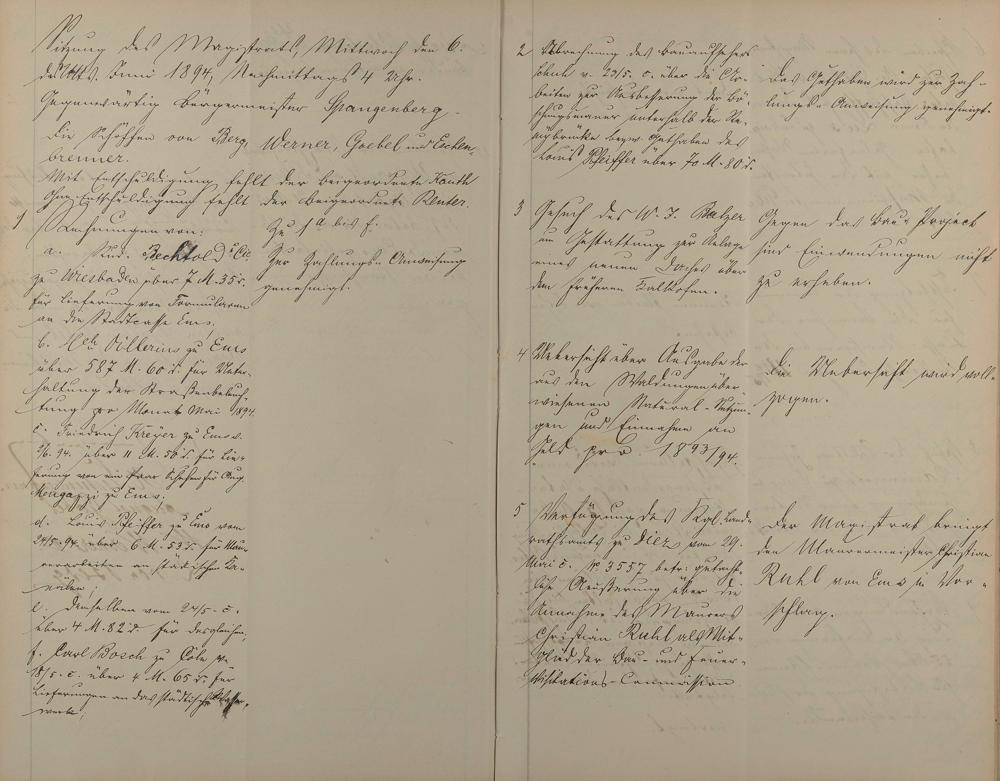 Sitzung des Magistrats, Mittwoch den 6.
des Mts. Juni 1894, Nachmittags 4 Uhr.
Gegenwärtig Bürgermeister Spangenberg.
die Schöffen von Berg, Werner, Goebel und Eschen-
brenner.
Mit Entschuldigung fehlt der Beigeordnete Kauth
Ohne Entschuldigung fehlt der Beigeordnete Reuter.
1 Rechnungen von:
a. Rud. Bechtold & Cie
zu Wiesbaden über 7 M. 35 d.
für Lieferung von Formularen
an die Stadtcasse Ems,
b. Hch. zu Ems
über 587 M. 60 d. für Unter-
haltung der Straßenbeleuch-
tung pro Monat Mai 1894.
c. Friedrich Kreyer zu Ems v.
2/6. 94. über 11 M. 50 d. für Lie-
ferung von ein Paar für Aug.
zu Ems;
d. Louis Pfeiffer zu Ems vom
24/5. 94 über 6 M. 53 d. für Mau-
rerarbeiten an städtischen Ka-
nälen;
e. Demselben vom 24/5. c.
über 4 M. 82 d. für desgleichen,
f. Carl Bosch zu Cöln v.
18/5. c. über 4 M. 65 d. für
Lieferungen an das städtische Wasser-
werk;
Zu 1 a bis f.
Zur Zahlungs-Anweisung
genehmigt.
2 Abrechnung des Bauaufsehers
v. 23/5. c. über die Ar-
beiten zur Ausbesserung der Bö-
schungsmauer unterhalb der
bezw. Guthaben des
Louis Pfeiffer über 70 M. 80 d.
Das Guthaben wird zur Zah-
lungs-Anweisung genehmigt.
3 Gesuch des W. J. Balzer
um Gestattung zur Anlage
eines neuen Daches über
dem früheren Kalkofen.
Gegen das Bau-Project
sind Einwendungen nicht
zu erheben.
4 Uebersicht über Ausgabe der
aus den Waldungen über-
wiesenen Natural-Nutzun-
gen und Einnahme an
Geld pro 1893/94.
Die Uebersicht wird voll-
zogen.
5 Verfügung des Kgl. Land-
rathsamts zu Diez vom 29.
Mai c. No 3557 betr. gutacht-
liche Aeußerung über die
Annahme des Maurers
Christian Ruhl als Mit-
glied der Bau- und Feuer-
Visitations-Commission
Der Magistrat bringt
den Maurermeister Christian
Ruhl von Ems in Vor-
schlag.